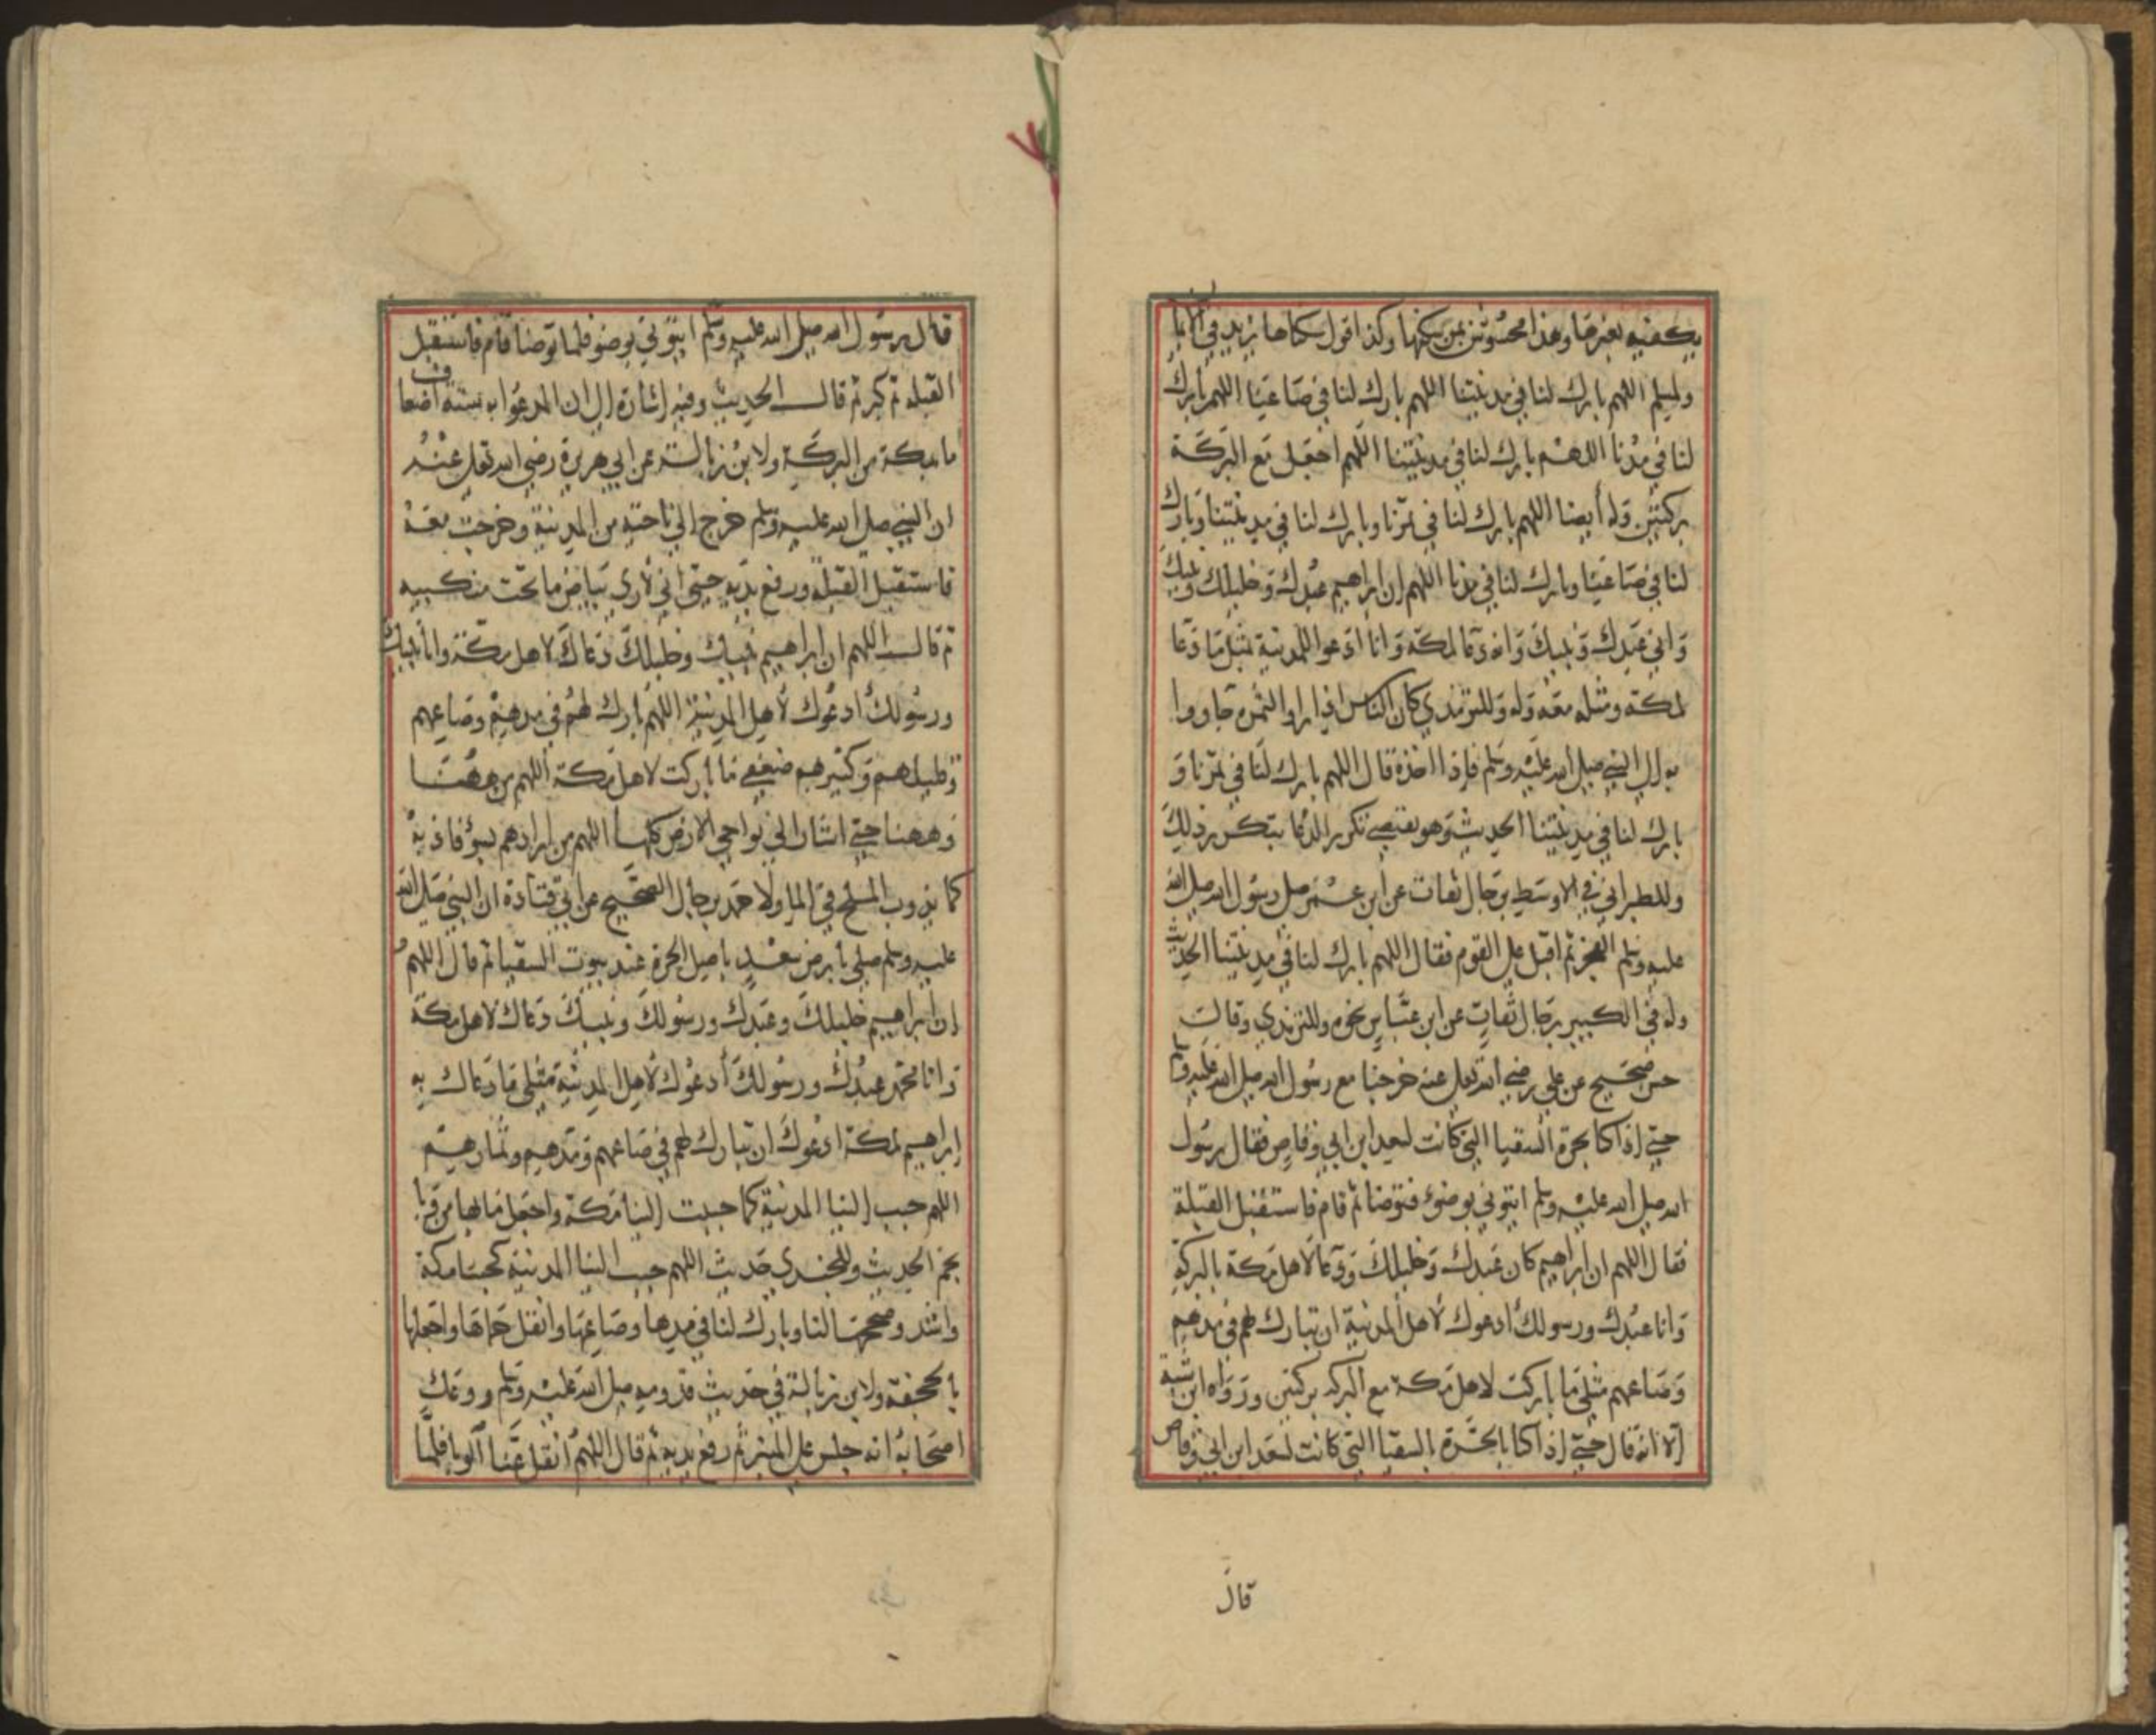 يكفيه بغيرها وهذا محسوس لمن سكنها وكذا قول سكناها يزيد في الايمان
ولمسلم اللهم بارك لنا في مدينتنا اللهم بارك لنا في صاعنا اللهم بارك
لنا في مدنا اللهم بارك لنا في مدينتنا اللهم اجعل مع البركة
بركتين وله أيضا اللهم بارك لنا في تمرنا وبارك لنا في مدينتنا وبارك
لنا في صاعنا وبارك لنا في مدنا اللهم إن ابراهيم عبدك وخليلك ونبيك
واني عبدك ونبيك وانه دعا لمكة وانا ادعوا للمدينة بمثل ما دعا
لمكة ومثله معه وله وللترمذي كان الناس اذا راوا الثمرة جاووا
به إلى النبي صلى الله عليه وسلم فإذا اخذه قال اللهم بارك لنا في ثمرنا و
بارك لنا في مدينتنا الحديث وهو يقتضي تكرير الدعا بتكرر ذلك
وللطبراني في الاوسط برجال ثقات عن ابن عمر صلى رسول الله صلى الله
عليه وسلم الفجر ثم اقبل على القوم فقال اللهم بارك لنا في مدينتنا الحديث
وله في الكبير برجال ثقات عن ابن عباس نحوه وللترمذي وقال
حسن صحيح عن علي رضي الله تعالى عنه خرجنا مع رسول الله صلى الله عليه وسلم
حتى إذا كنا بحرة السقيا التي كانت لسعد ابن ابي وقاص فقال رسول
الله صلى الله عليه وسلم ايتوني بوضوء فتوضا ثم قام فاستقبل القبلة
فقال اللهم ان ابراهيم كان عبدك وخليلك ودعا لاهل مكة بالبركة
وانا عبدك ورسولك أدعوك لأهل المدينة ان تبارك لهم في مدهم
وصاعهم مثلي ما باركت لاهل مكة مع البركة بركتين ورواه ابن شبة
إلا انه قال حتى إذا كنا بالحرة بالسقيا التي كانت لسعد ابن ابي وقاص
قال
قال رسول الله صلى الله عليه وسلم ايتوني بوضو فلما توضا قام فاستقبل
القبلة ثم كبر ثم قال الحديث وفيه إشارة إلى ان المدعوا به ستة اضعاف
ما بمكة من البركة ولابن زبالة عن ابي هريرة رضي الله تعالى عنه
ان النبي صلى الله عليه وسلم خرج إلى ناحية من المدينة وخرجت معه
فاستقبل القبلة ورفع يديه حتى اني لأرى بياض ما تحت منكبيه
ثم قال اللهم ان إبراهيم نبيك وخليلك دعاك لاهل مكة وانا نبيك
ورسولك أدعوك لأهل المدينة اللهم بارك لهم في مدهم وصاعهم
وقليلهم وكثيرهم ضعفي ما باركت لاهل مكة اللهم من ههنا
وههنا حتى اشار الي نواحي الارض كلها اللهم من ارادهم بسوء فاذبه
كما يذوب الملح في الما ولاحمد برجال الصحيح عن ابي قتادة ان النبي صلى الله
عليه وسلم صلى بارض سعد باصل الحرة عند بيوت السقيا ثم قال اللهم
إن ابراهيم خليلك وعبدك ورسولك ونبيك دعاك لاهل مكة
وانا محمد عبدك ورسولك أدعوك لأهل المدينة مثلي ما دعاك به
إبراهيم لمكة ادعوك ان تبارك لهم في صاعهم ومدهم وثمارهم
اللهم حبب إلينا المدينة كما حببت إلينا مكة واجعل ما بها من وبا
بخم الحديث وللجندي حديث اللهم حبب الينا المدينة كحبنا مكة
واشد وصححها لنا وبارك لنا في مدها وصاعها وانقل حماها واجعلها
بالجحفة ولابن زبالة في حديث قدومه صلى الله عليه وسلم ووعك
اصحابه انه جلس على المنبر ثم رفع يديه ثم قال اللهم انقل عنا الوبا فلما